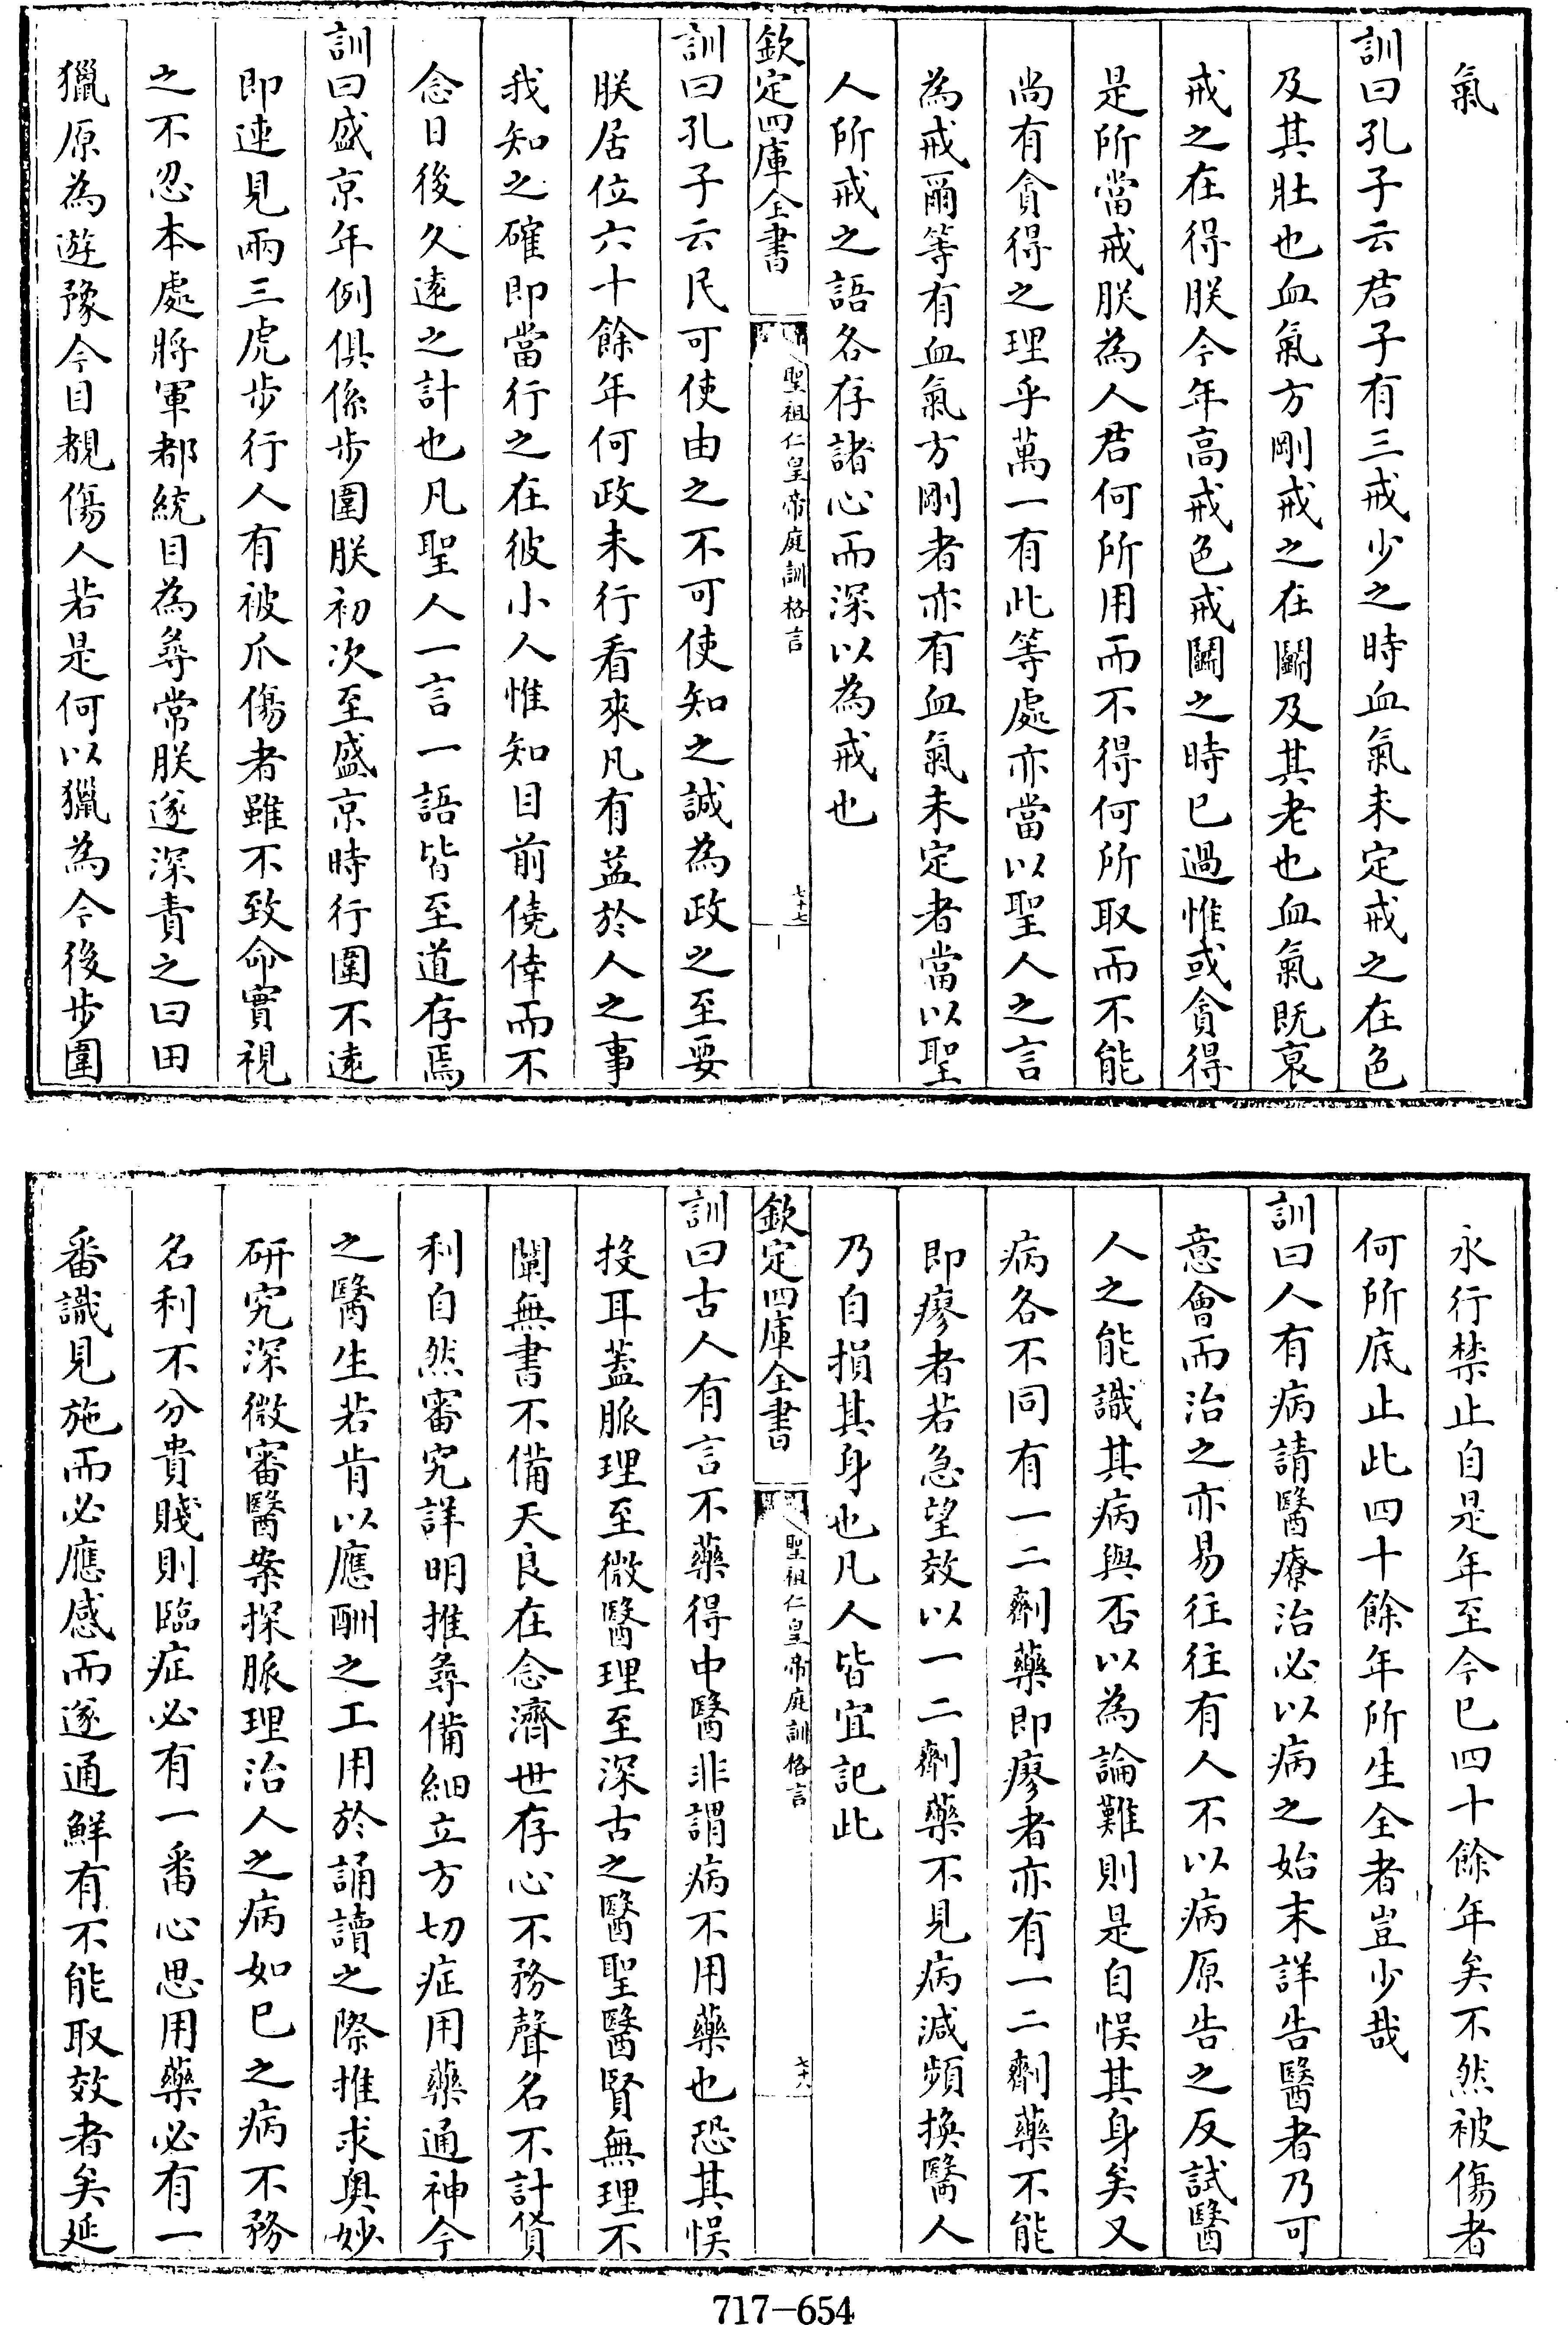 氣
訓曰孔子云君子有三戒少之時血氣未定戒之在色
及其壯也血氣方剛戒之在鬭及其老也血氣既衰
戒之在得朕今年高戒色戒鬭之時已過惟或貪得
是所當戒朕為人君何所用而不得何所取而不能
尚有貪得之理乎萬一有此等處亦當以聖人之言
為戒爾等有血氣方剛者亦有血氣未定者當以聖
人所戒之語各存諸心而深以為戒也
欽定四庫全書
聖祖仁皇帝庭訓格言
七十七
訓曰孔子云民可使由之不可使知之誠為政之至要
朕居位六十餘年何政未行看來凡有益於人之事
我知之確即當行之在彼小人惟知目前僥倖而不
念日後久遠之計也凡聖人一言一語皆至道存焉
訓曰盛京年例俱係步圍朕初次至盛京時行圍不遠
即連見兩三虎步行人有被爪傷者雖不致命實視
之不忍本處將軍都統目為尋常朕遂深責之曰田
獵原為遊豫今目覩傷人若是何以獵為今後步圍
永行禁止自是年至今已四十餘年矣不然被傷者
何所底止此四十餘年所生全者豈少哉
訓曰人有病請醫療治必以病之始末詳告醫者乃可
意會而治之亦易往往有人不以病原告之反試醫
人之能識其病與否以為論難則是自悞其身矣又
病各不同有一二劑藥即瘳者亦有一二劑藥不能
即瘳者若急望效以一二劑藥不見病減頻換醫人
乃自損其身也凡人皆宜記此
欽定四庫全書
聖祖仁皇帝庭訓格言
七十八
訓曰古人有言不藥得中醫非謂病不用藥也恐其悞
投耳蓋脈理至微醫理至深古之醫聖醫賢無理不
闡無書不備天良在念濟世存心不務聲名不計貨
利自然審究詳明推尋備細立方切症用藥通神今
之醫生若肯以應酬之工用於誦讀之際推求奧妙
研究深微審醫案探脈理治人之病如己之病不務
名利不分貴賤則臨症必有一番心思用藥必有一
番識見施而必應感而遂通鮮有不能取效者矣延
717-654